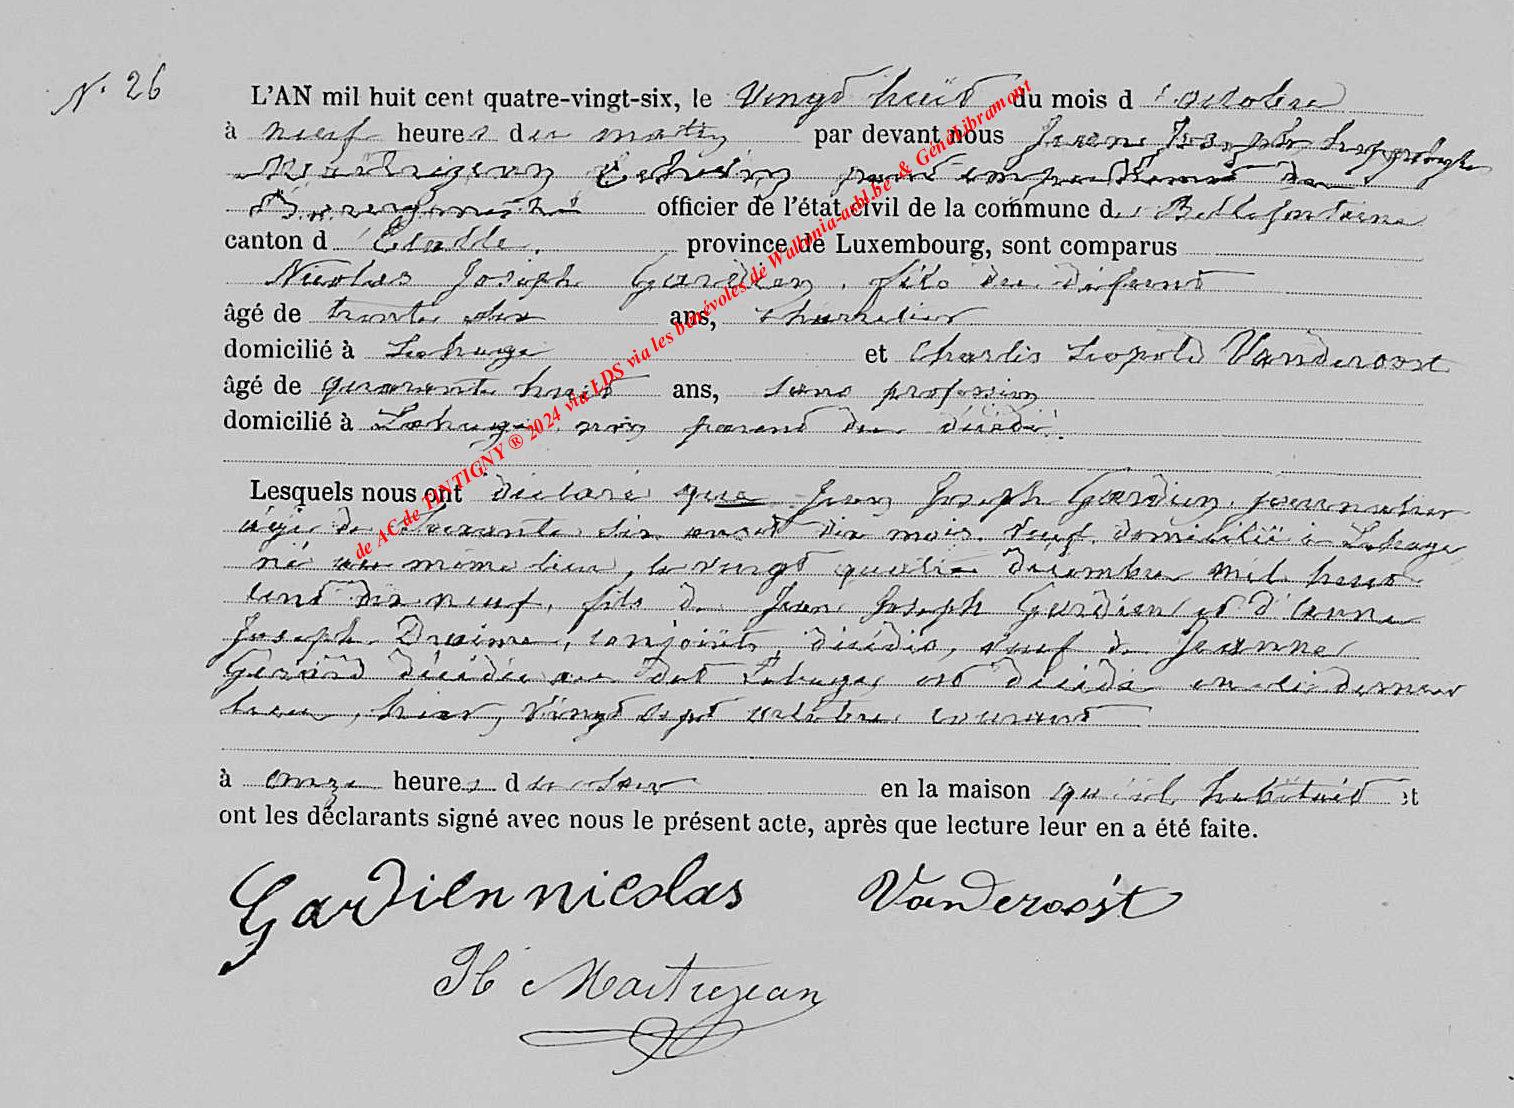 N. 26
L'AN mil huit cent quatre-vingt-six, le Vingt huit du mois d'octobre
à neuf heures du matin par devant nous Jean Joseph
Maitrejean Echevin pour empêchement du
Bourgmestre officier de l'état civil de la commune de Bellefontaine
canton d'Etalle, province de Luxembourg, sont comparus
Nicolas Joseph Gardien, fils du défunt
âgé de trente six ans,
domicilié à Lahage et Charles Leopold Vanderoost
âgé de quarante huit ans, sans profession
domicilié à Lahage, non parent du décédé.
Lesquels nous ont déclaré que Jean Joseph Gardien, journalier
âgé de soixante six ans et dix mois, veuf, domicilié à Lahage
né au même lieu, le vingt quatre décembre mil huit
cent dix neuf, fils de Jean Joseph Gardien et d'anne
Joseph, conjoints, décédés, veuf de Jeanne
Gérard décédée au dit Lahage, est décédé en ce dernier
lieu, hier, vingt sept octobre courant
à onze heures du soir en la maison qu'il habitait et
ont les déclarants signé avec nous le présent acte, après que lecture leur en a été faite.
Gardien nicolas Vanderoost
Maitrejean
de AC de TINTIGNY ® 2024 via LDS via les bénévoles de Wallonia-asbl.be & GénéaLibramont